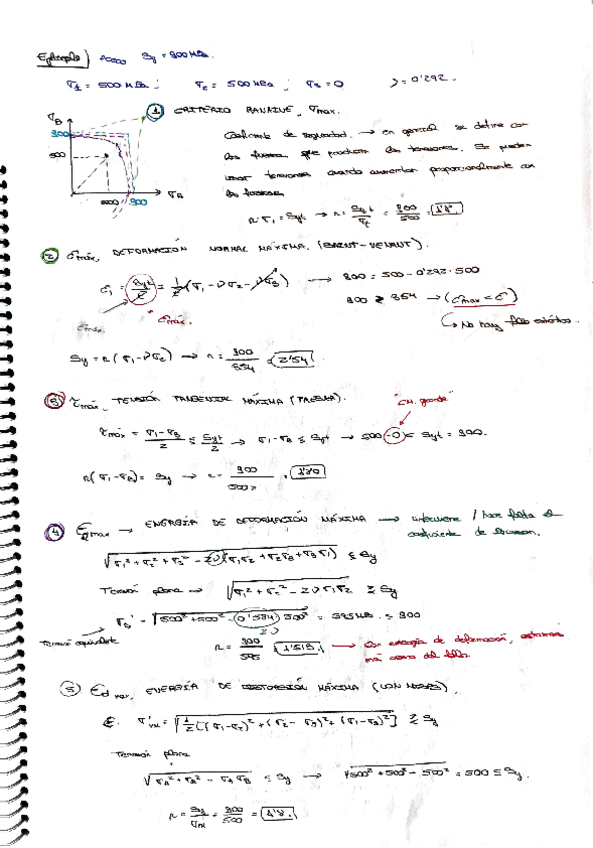 Ejemplo) Acero Sy = 900 MPa.
σ1 = 500 MPa; σ2 = 500 MPa; σ3 = 0 ν = 0'292.
① CRITERIO RANKINE, σmax.
σB
900
500
500 900 σA
Coeficiente de seguridad. → en general se define con
las fuerzas que producen las tensiones. Se pueden
usar tensiones cuando aumentan proporcionalmente con
las fuerzas
n·σ1 = Syt → n = Syt/σ1 = 900/500 = 1'8
② εmáx, DEFORMACIÓN NORMAL MÁXIMA. (SAINT-VENANT).
ε1 = Syt/E = 1/E (σ1 - νσ2 - νσ3) → 900 = 500 - 0'292·500
εmax. εmáx. 900 ≥ 354 → (εmax < ε)
↳ No hay fallo estático.
Sy = n(σ1 - νσ2) → n = 900/354 = 2'54
③ τmáx, TENSIÓN TANGENCIAL MÁXIMA (TRESCA).
"CM. grande"
τmáx = (σ1 - σ3)/2 ≤ Syt/2 → σ1 - σ3 ≤ Syt → 500 - 0 ≤ Syt = 900.
n(σ1 - σ3) = Sy → n = 900/500 = 1'80
④ → ENERGÍA DE DEFORMACIÓN MÁXIMA → interviene / hace falta el
coeficiente de Poisson.
√(σ1² + σ2² + σ3² - 2ν(σ1σ2 + σ2σ3 + σ3σ1)) ≤ Sy
Tensión plana → √(σ1² + σ2² - 2νσ1σ2) ≥ Sy
= √(500² + 500² - 0'584·500²) = 595 MPa. ≥ 900
2ν
Tensión equivalente
n = 900/595 = 1'513. → Con energía de deformación, estaremos
más cerca del fallo.
⑤ Ed max, ENERGÍA DE DISTORSIÓN MÁXIMA (VON MISES).
σ'VM = √(1/2[(σ1-σ2)² + (σ2-σ3)² + (σ1-σ3)²] ≥ Sy
Tensión plana
√(σA² + σB² - σAσB) ≤ Sy → √(500² + 500² - 500²) = 500 ≤ Sy.
n = Sy/σVM = 900/500 = 1'8.